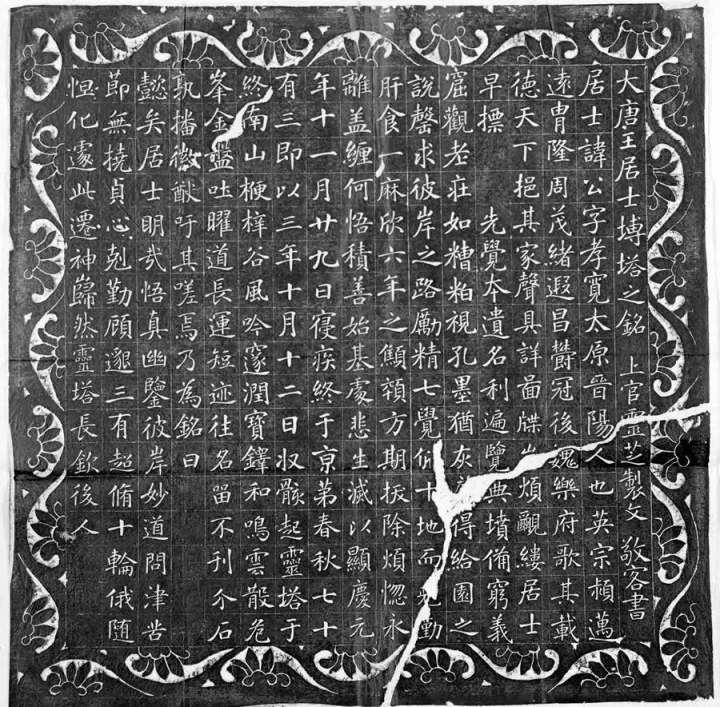 大唐王居士塼塔之銘 上官靈芝製文 敬客書
居士諱公字孝寬太原晉陽人也英宗穎萬
遠冑隆周茂緒遐昌欝冠後魏樂府歌其載
德天下挹其家聲具詳啚牒煩覼縷居士
早摽 先覺夲遺名利遍覽典墳俻窮義
窟觀老莊如糟粕視孔墨猶灰得給園之
說罄求彼岸之路勵精七覺仰十地而勤
肝食一麻欣六年之顦顇方期拔除煩惚永
離盖纏何悟積善始基處悲生滅以顯慶元
年十一月廿九日寑疾終于京第春秋七十
有三即以三年十月十二日収骸起靈塔于
終南山楩梓谷風吟邃澗寶鐸和鳴雲散危
峯金盤吐曜道長運短迹往名留不刊介石
孰播徽猷吁其嗟焉乃為銘曰
懿矣居士明哉悟真幽鑒彼岸妙道問津苦
節無撓貞心剋勤顧邈三有超脩十輪俄隨
怛化遽此遷神歸然靈塔長欽後人